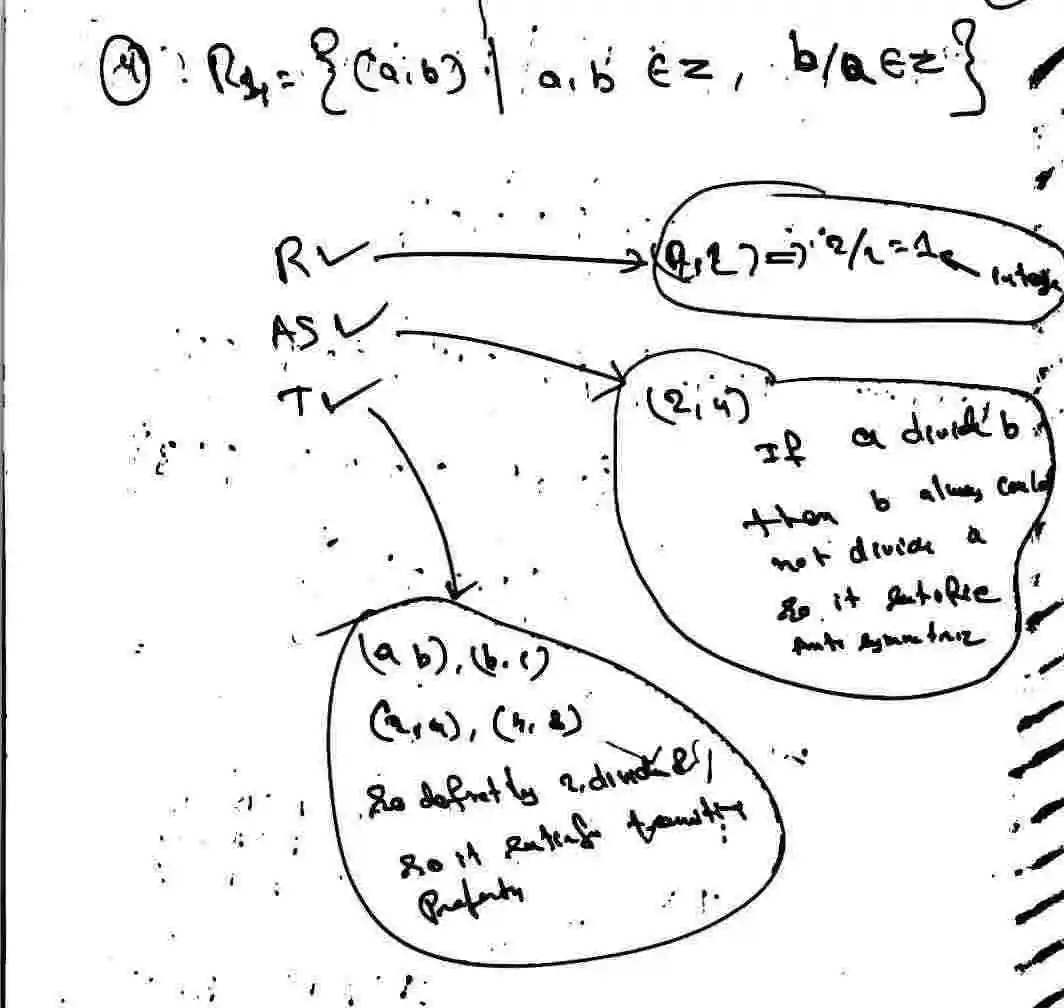 ④ : R₄ = {(a,b) | a,b ∈ Z, b/a ∈ Z}
R✓ → (2,2) ⇒ 2/2 = 1 ←
AS✓ → (2,4)
If a divide b
then b always could
not divide a
so it satisfie
Anti symmetric
T✓
(a b), (b, c)
(2,4), (4,8)
so definetly 2 divide 8,
so it transitive
Property